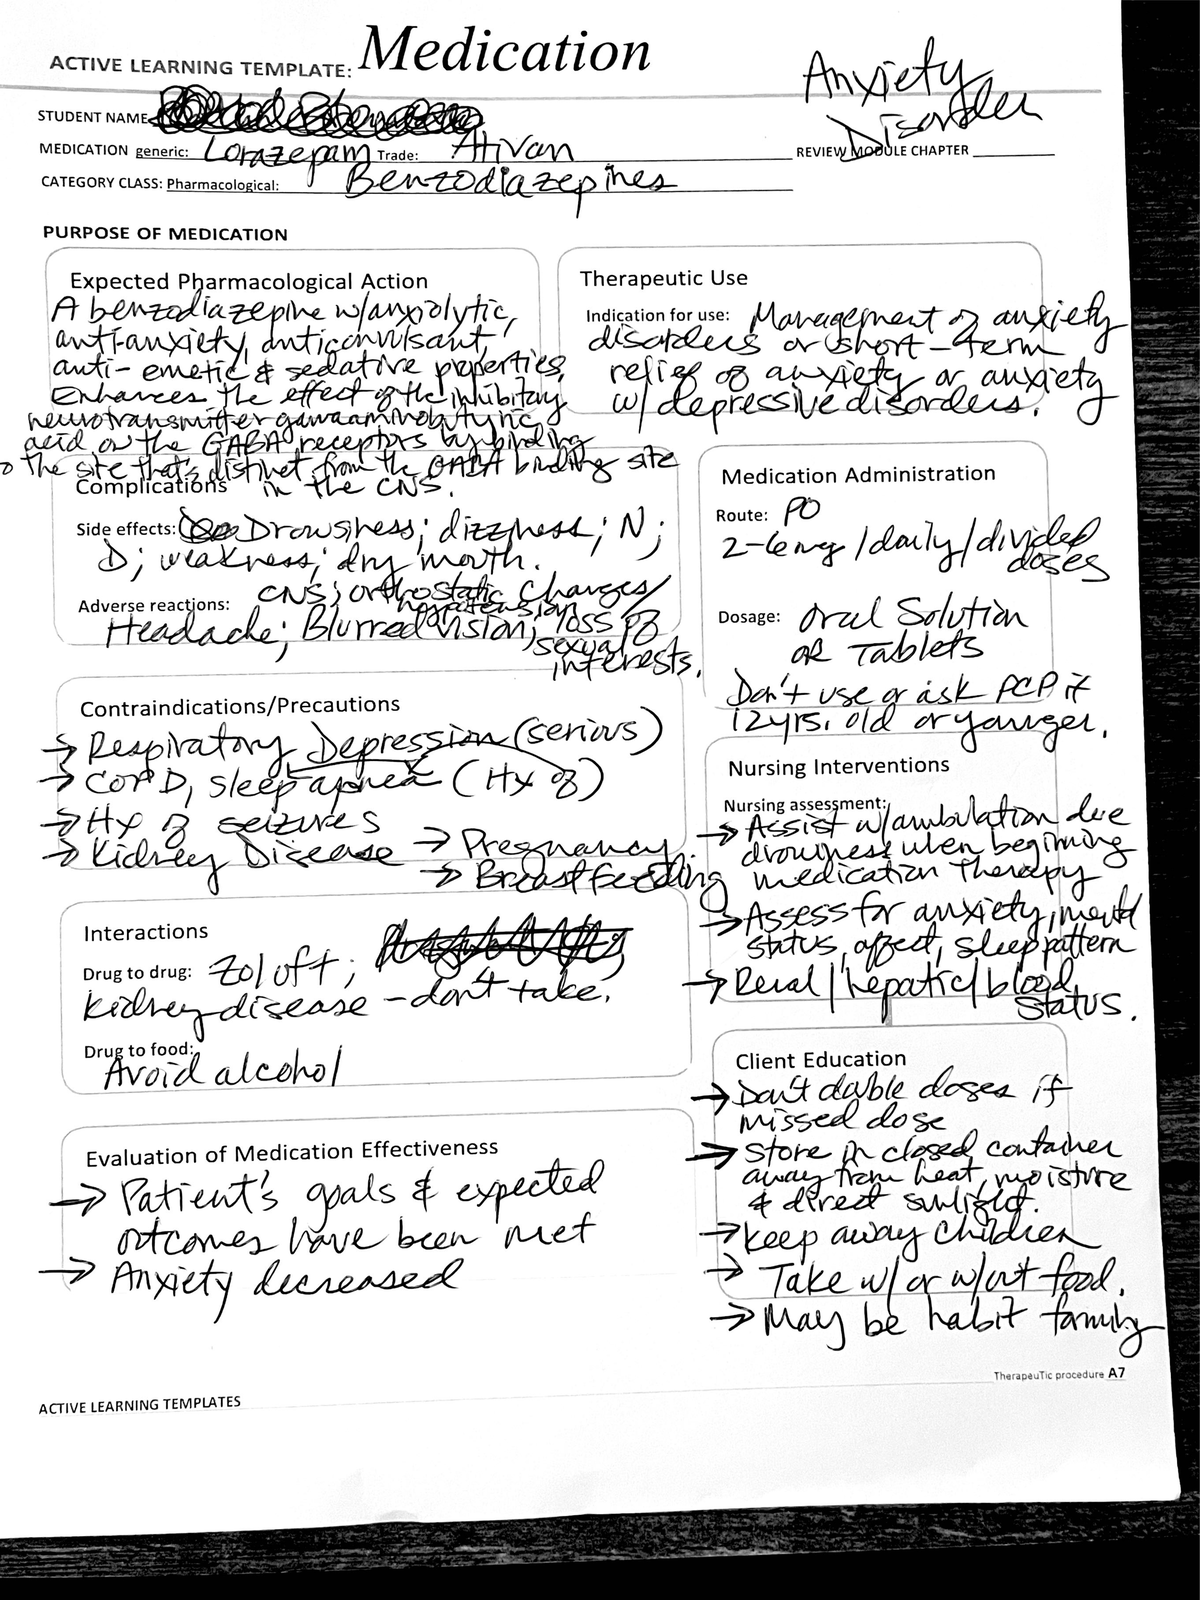 ACTIVE LEARNING TEMPLATE: Medication
Anxiety
Disorder
STUDENT NAME
MEDICATION generic: Lorazepam Trade: Ativan
REVIEW MODULE CHAPTER
CATEGORY CLASS: Pharmacological: Benzodiazepines
PURPOSE OF MEDICATION
Expected Pharmacological Action
A benzodiazepine w/anxiolytic,
anti-anxiety, anticonvulsant,
anti-emetic & sedative properties.
Enhances the effect of the inhibitory
neurotransmitter
acid on the GABA receptors by binding
to the site that's distinct from the GABA binding site
in the CNS.
Therapeutic Use
Indication for use: Management of anxiety
disorders or short-term
relief of anxiety or anxiety
w/ depressive disorders.
Complications
Side effects: Drowsiness; dizziness; N;
D; weakness; dry mouth.
Adverse reactions: CNS; orthostatic changes/
hypotension
Headache; Blurred vision; loss of
sexual
interests.
Medication Administration
Route: PO
2-6 mg/daily/divided
doses
Dosage: Oral Solution
OR Tablets
Don't use or ask PCP if
12yrs. old or younger.
Contraindications/Precautions
→ Respiratory Depression (serious)
→ COPD, sleep apnea (Hx of)
→ Hx of seizures
→ Kidney Disease → Pregnancy
→ Breastfeeding
Nursing Interventions
Nursing assessment:
→ Assist w/ambulation due
drowiness when beginning
medication therapy
→ Assess for anxiety, mental
status, affect, sleep pattern
→ Renal/hepatic/blood
status.
Interactions
Drug to drug: Zoloft;
Kidney disease - don't take.
Drug to food:
Avoid alcohol
Client Education
→ Don't double doses if
missed dose
→ Store in closed container
away from heat, moisture
& direct sunlight.
→ Keep away children
→ Take w/ or w/out food.
→ May be habit forming
Evaluation of Medication Effectiveness
→ Patient's goals & expected
outcomes have been met
→ Anxiety decreased
TherapeuTic procedure A7
ACTIVE LEARNING TEMPLATES